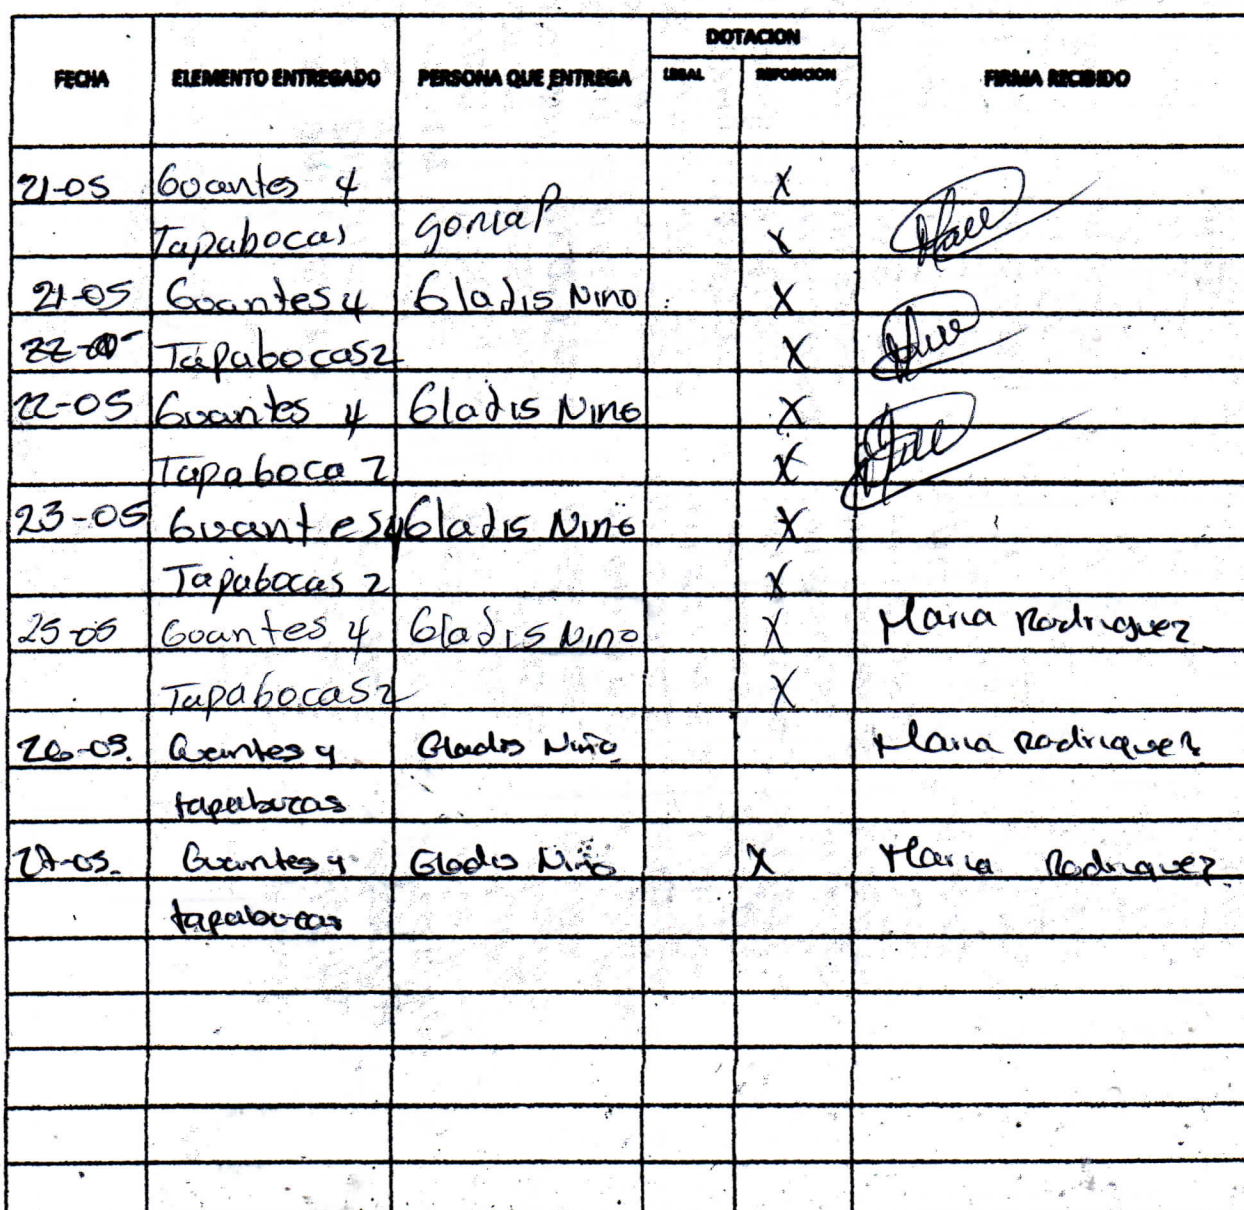 DOTACION
FECHA ELEMENTO ENTREGADO PERSONA QUE ENTREGA LEGAL REPOSICION FIRMA RECIBIDO
21-05 Guantes 4 X
Tapabocas X
21-05 Guantes 4 Gladis Nino X
Tapabocas 2 X
22-05 Guantes 4 Gladis Nino X
Tapaboca 2 X
23-05 Guantes 4 Gladis Nino X
Tapabocas 2 X
25-05 Guantes 4 Gladis Nino X Maria Rodriguez
Tapabocas 2 X
26-05. Guantes y Gladis Niño Maria Rodriguez
tapabocas
27-05. Guantes y Gladis Niño X Maria Rodriguez
tapabocas